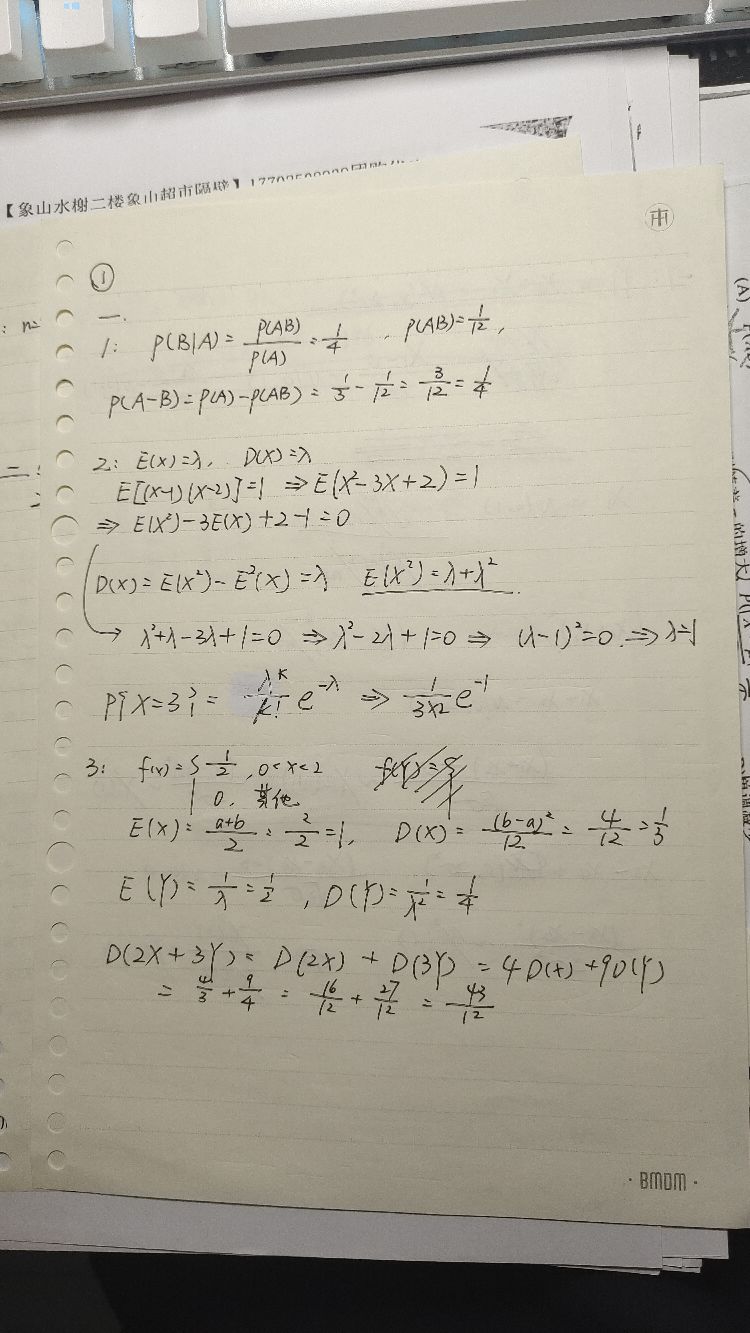 【象山水榭二楼象山超市隔壁】
①
一.
1: P(B|A) = P(AB)/P(A) = 1/4 , P(AB) = 1/12 ,
P(A-B) = P(A) - P(AB) = 1/3 - 1/12 = 3/12 = 1/4
2: E(X) = λ, D(X) = λ
E[(X-1)(X-2)] = 1 ⇒ E(X²-3X+2) = 1
⇒ E(X²) - 3E(X) + 2 - 1 = 0
D(X) = E(X²) - E²(X) = λ E(X²) = λ + λ²
→ λ²+λ-3λ+1=0 ⇒ λ²-2λ+1=0 ⇒ (λ-1)²=0. ⇒ λ=1
P{X=3} = λ^K/K! e^-λ ⇒ 1/3×2 e^-1
3: f(x) = { 1/2 , 0<x<2
0, 其他
E(X) = a+b/2 = 2/2 = 1, D(X) = (b-a)²/12 = 4/12 = 1/3
E(Y) = 1/λ = 1/2 , D(Y) = 1/λ² = 1/4
D(2X+3Y) = D(2X) + D(3Y) = 4D(X) + 9D(Y)
= 4/3 + 9/4 = 16/12 + 27/12 = 43/12
· BMDM ·